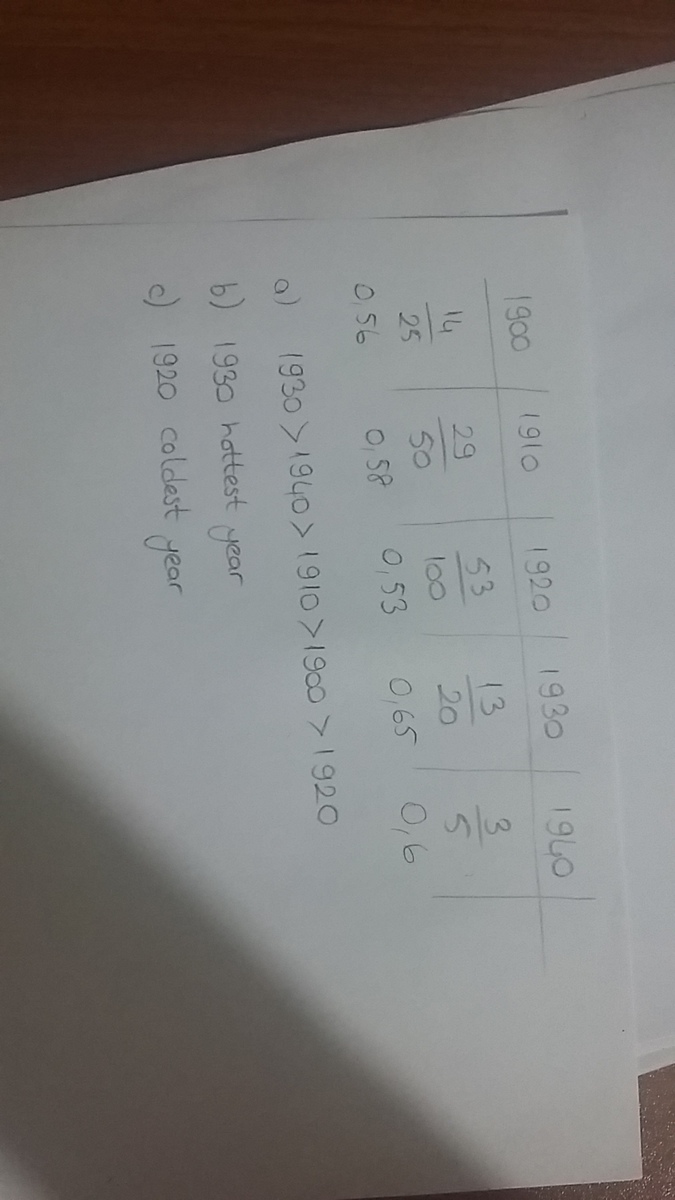 1900 1910 1920 1930 1940
14/25 29/50 53/100 13/20 3/5
0,56 0,58 0,53 0,65 0,6
a) 1930 > 1940 > 1910 > 1900 > 1920
b) 1930 hottest year
c) 1920 coldest year